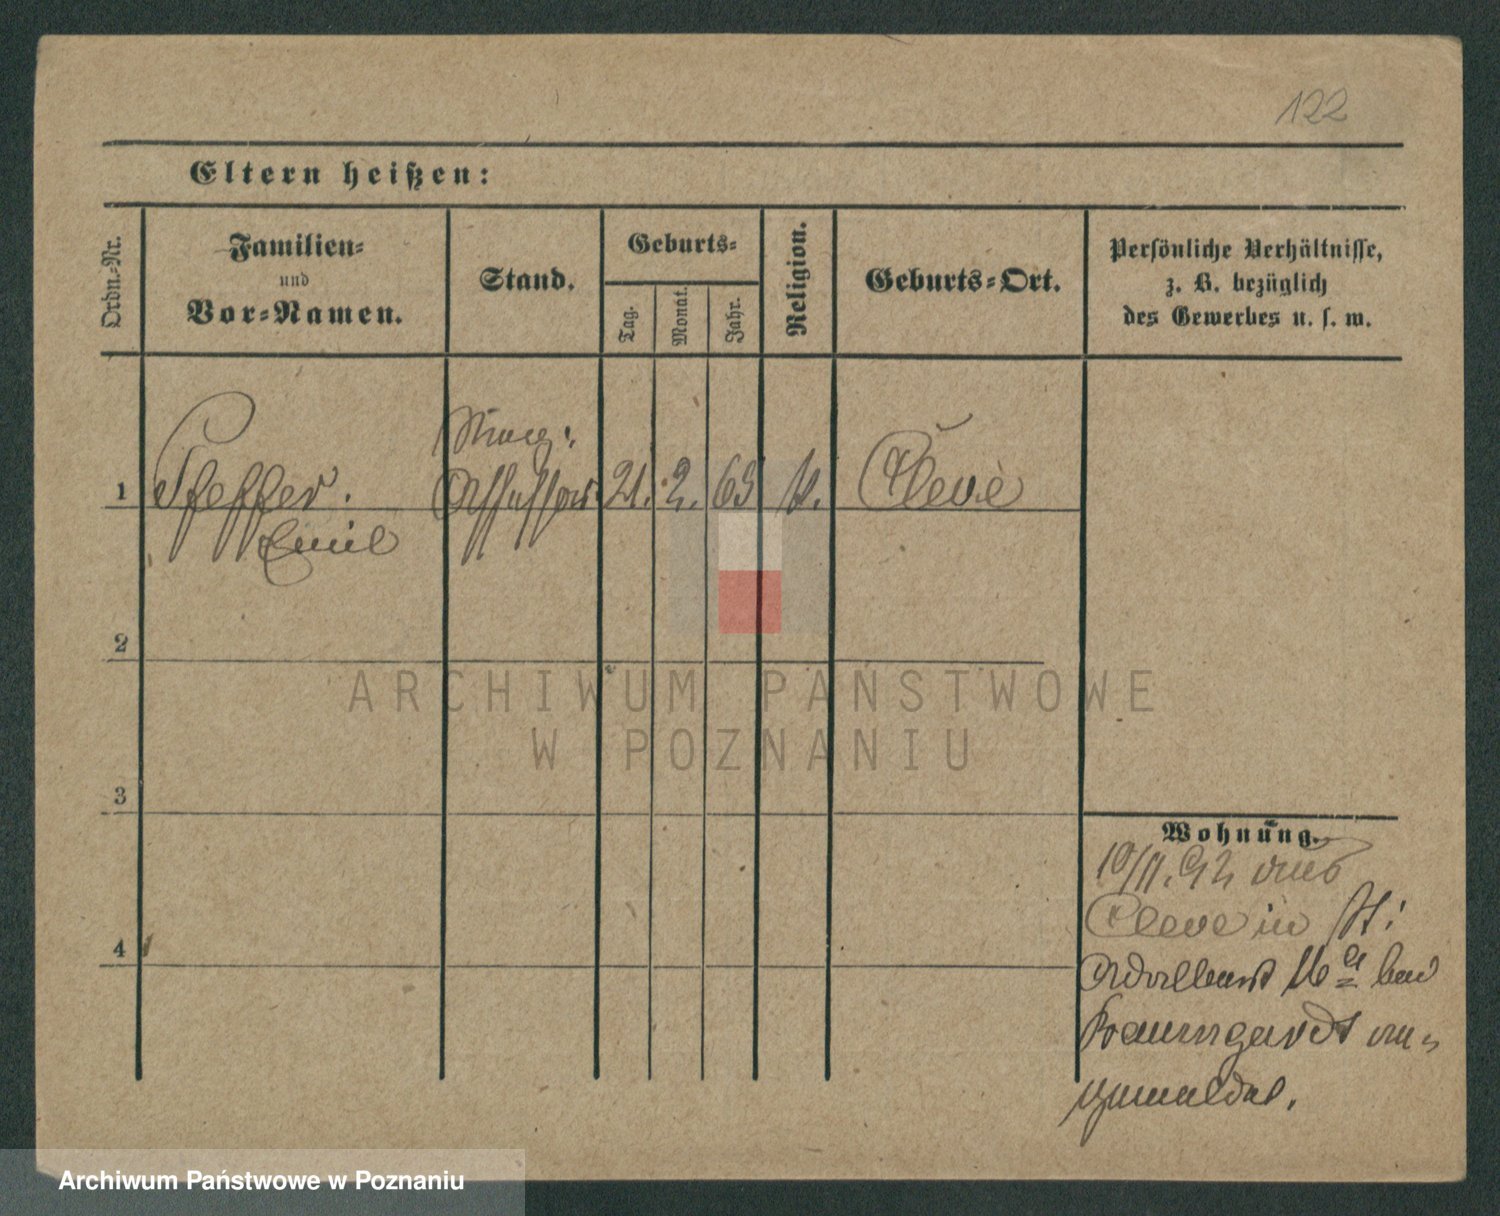 122
Eltern heißen:
Ordn.-Nr.
Familien-
und
Vor-Namen.
Stand.
Geburts-
Tag.
Monat.
Jahr.
Religion.
Geburts-Ort.
Persönliche Verhältnisse,
z. B. bezüglich
des Gewerbes u. s. w.
1 Pfeffer. Assessor 21. 2. 63 Cleve
Emil
2
3
4
ARCHIWUM PAŃSTWOWE
W POZNANIU
Wohnung.
10/11. 92 aus
Cleve in St:
Adalbert bei
Baumgardt an-
gemeldet.
Archiwum Państwowe w Poznaniu